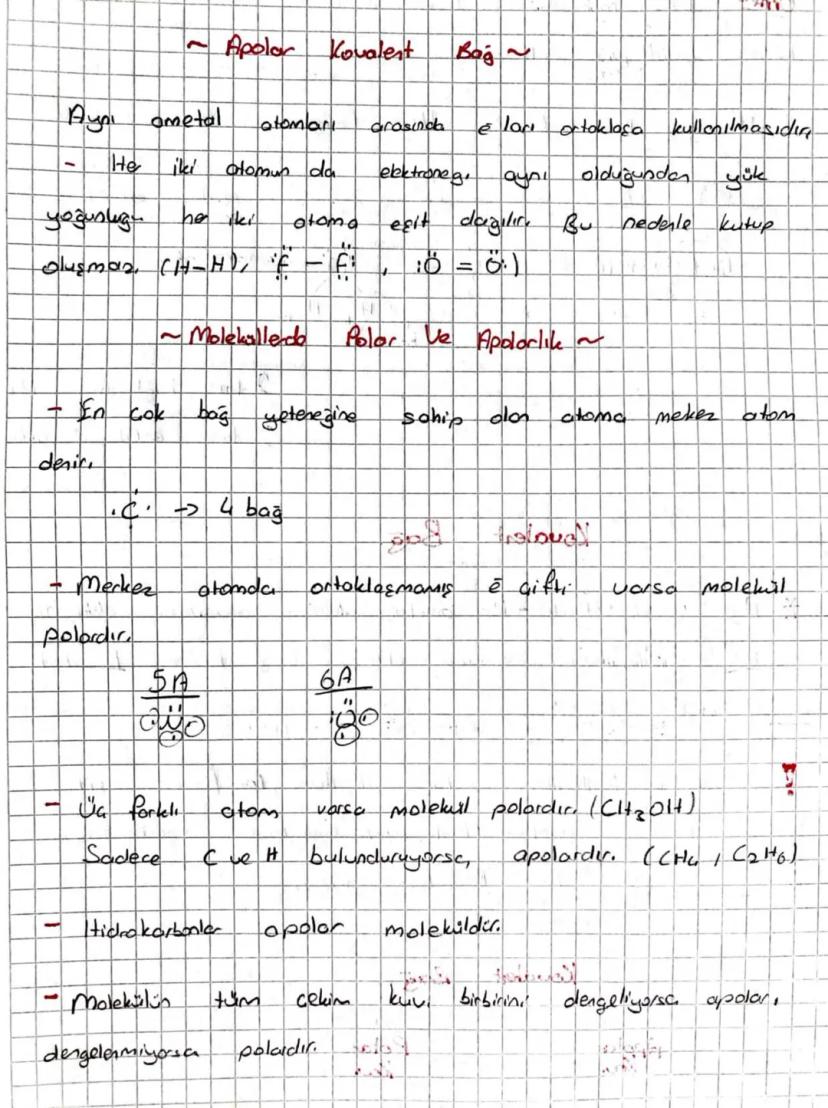 ~ Apolar Kovalent Bağ ~
Aynı ametal atomları arasında ē ları ortaklaşa kullanılmasıdır.
- Her iki atomun da elektroneg. aynı olduğundan yük
yoğunluğu her iki atoma eşit dağılır. Bu nedenle kutup
oluşmaz. (H-H), :F̈ - F̈: , :Ö = Ö:)
~ Moleküllerde Polar Ve Apolarlık ~
- En çok bağ yeteneğine sahip olan atoma merkez atom
denir.
·C· → 4 bağ
- Merkez atomda ortaklaşmamış ē çifti varsa molekül
polardır.
5A 6A
- Üç farklı atom varsa molekül polardır. (CH3OH)
Sadece C ve H bulunduruyorsa, apolardır. (CH4, C2H6)
- Hidrokarbonlar apolar moleküldür.
- Molekülün tüm çekim kuv. birbirini dengeliyorsa apolar,
dengelenmiyorsa polardır.